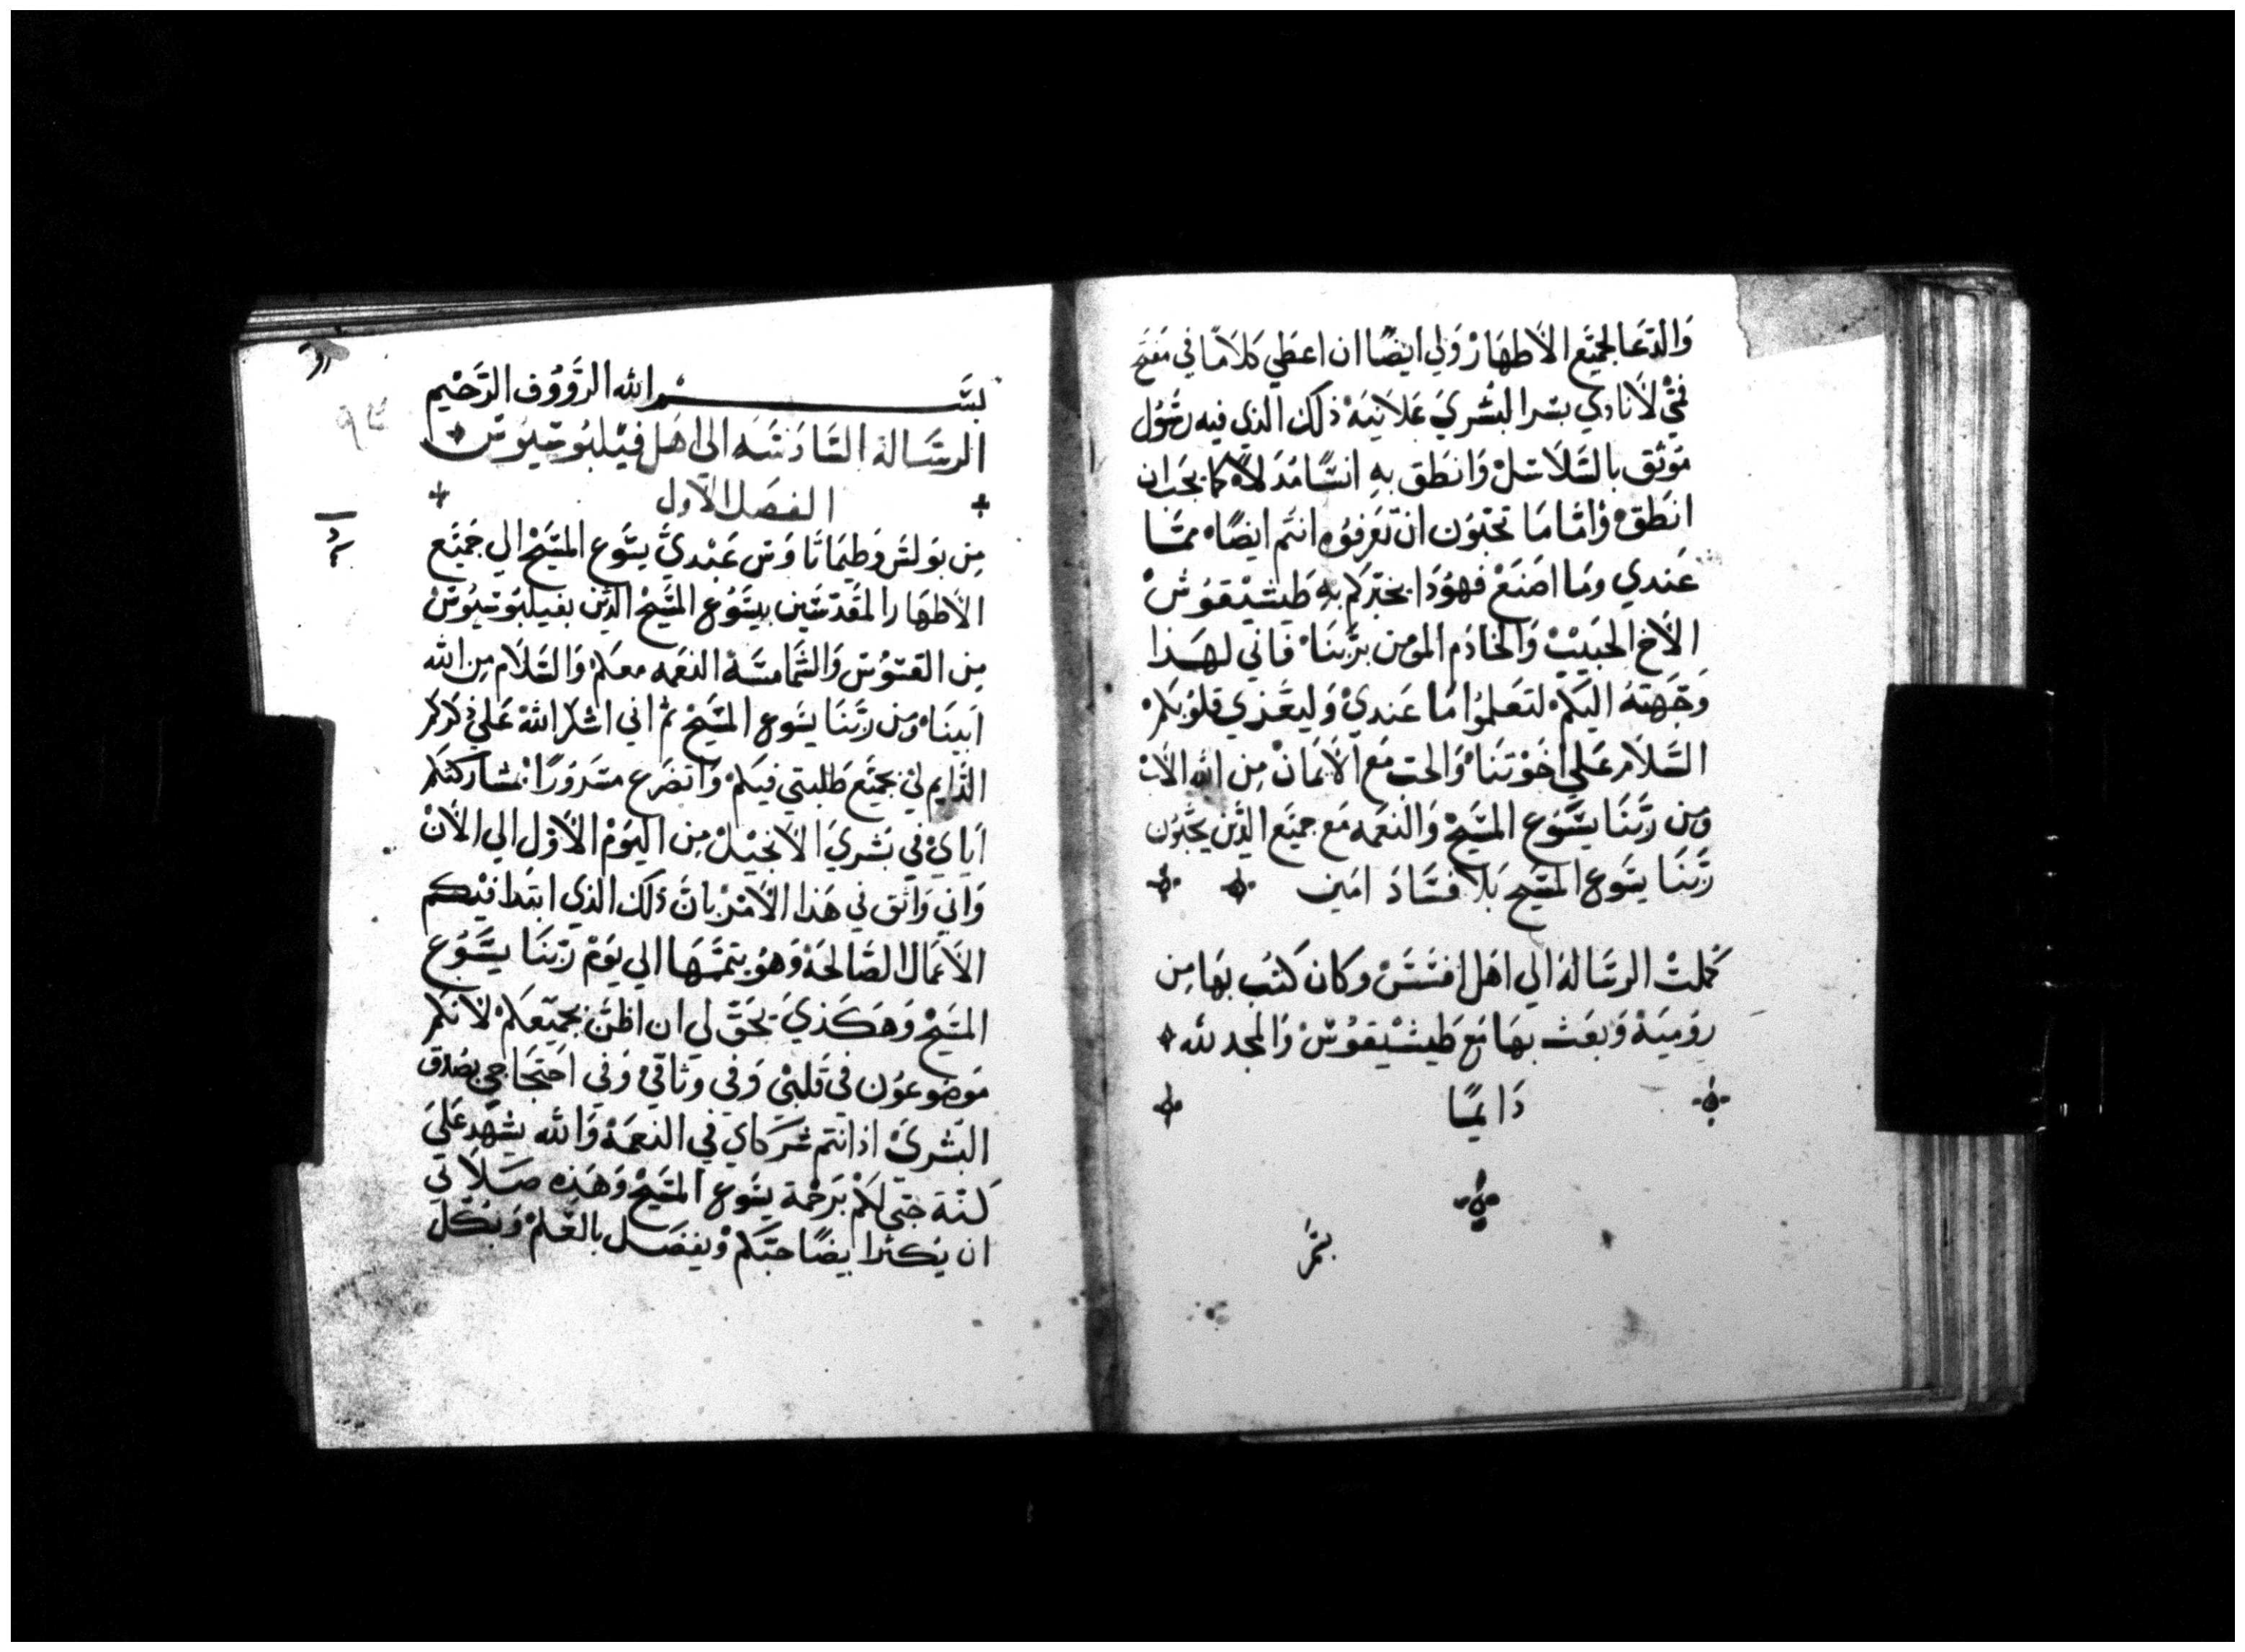 والدعا لجميع الاطهار ولي ايضًا ان اعطي كلامًا في مفتح
فمي لانادي بسر البشري علانيه ذلك الذي فيه رسول
موثق بالسلاسل وانطق به انسًا مدلاً كما يجب ان
انطق واما ما تحبون ان تعرفوه انتم ايضًا مما
عندي وما اصنع فهوذا يخبركم به طيشيقوس
الاخ الحبيب والخادم المومن بربنا فاني لهذا
وجهته اليكم لتعلموا ما عندي وليعزي قلوبكم
السلام علي اخوتنا والحب مع الايمان من الله الاب
ومن ربنا يسوع المسيح والنعمه مع جميع الذين يحبون
ربنا يسوع المسيح بلا فساد امين
كملت الرسالة الي اهل افسس وكان كتب بها من
روميه وبعث بها مع طيشيقوس والمجد لله
دايمًا
بسم الله الرووف الرحيم
الرسالة السادسه الي اهل فيلبوسيوس
الفصل الاول
من بولس وطيماثاوس عبدي يسوع المسيح الي جميع
الاطهار المقدسين بيسوع المسيح الذين بفيلبوسيوس
من القسوس والشمامسة النعمه معكم والسلام من الله
ابينا ومن ربنا يسوع المسيح ثم اني اشكر الله علي ذكركم
الدايم لي بجميع طلبتي فيكم واتضرع مسرورًا بمشاركتكم
اياي في بشري الانجيل من اليوم الاول الي الان
واني واثق في هذا الامر بان ذلك الذي ابتدا فيكم
الاعمال الصالحة وهو يتممها الي يوم ربنا يسوع
المسيح وهكذي يحق لي ان اظن بجميعكم لانكم
موضوعون في قلبي وفي وثاقي وفي احتجاجي بصدق
البشري اذ انتم شركاي في النعمة والله يشهد علي
كنة حبي لكم برحمة يسوع المسيح وهذه صلاتي
ان يكثر ايضًا حبكم ويفضل بالعلم وبكل